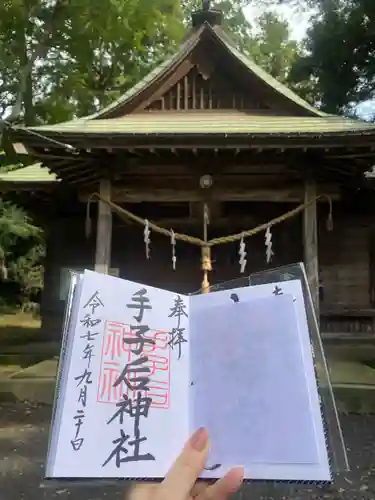 奉拝
手子后神社
神社
令和七年九月二十日